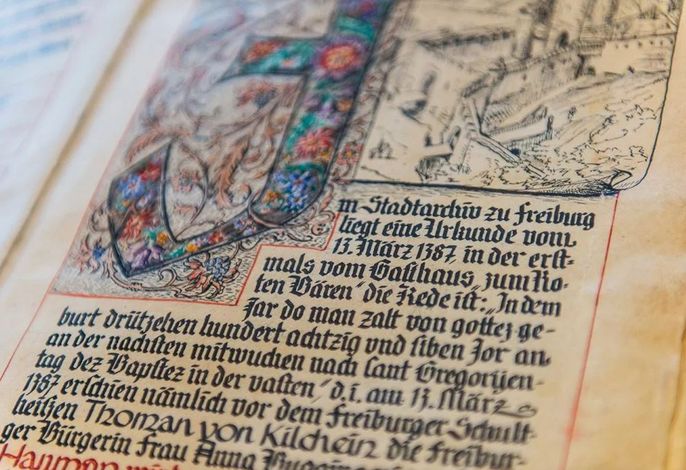 Im Stadtarchiv zu Freiburg
liegt eine Urkunde vom
13. März 1387, in der erst-
mals vom Gasthaus „zum Ro-
ten Bären" die Rede ist: „In dem
Jar do man zalt von gottez ge-
burt drützehen hundert achtzig vnd siben Jor an
an der nachsten mitwuchen nach sant Gregorijen-
tag dez Bapstez in der vasten", d. i. am 13. März
1387 erschien nämlich vor dem Freiburger Schult-
heißen Thoman von Kilchein die Freibur-
ger Bürgerin Frau Anna